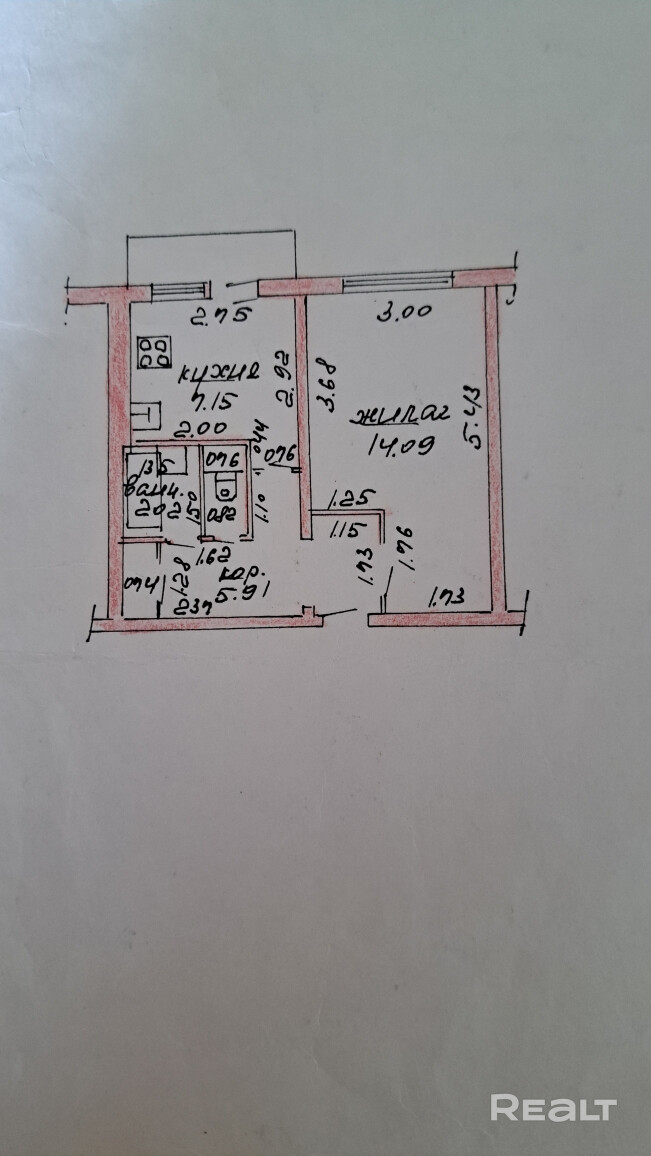 2.75
3.00
кухня
7.15
2.92
3.68
жилая
14.09
5.43
2.00
0.44
0.76
1.35
0.76
ванн.
2.02
1.50
0.82
1.10
1.25
1.15
1.62
кор.
5.91
0.74
1.28
2.37
1.73
1.76
1.73
REALT